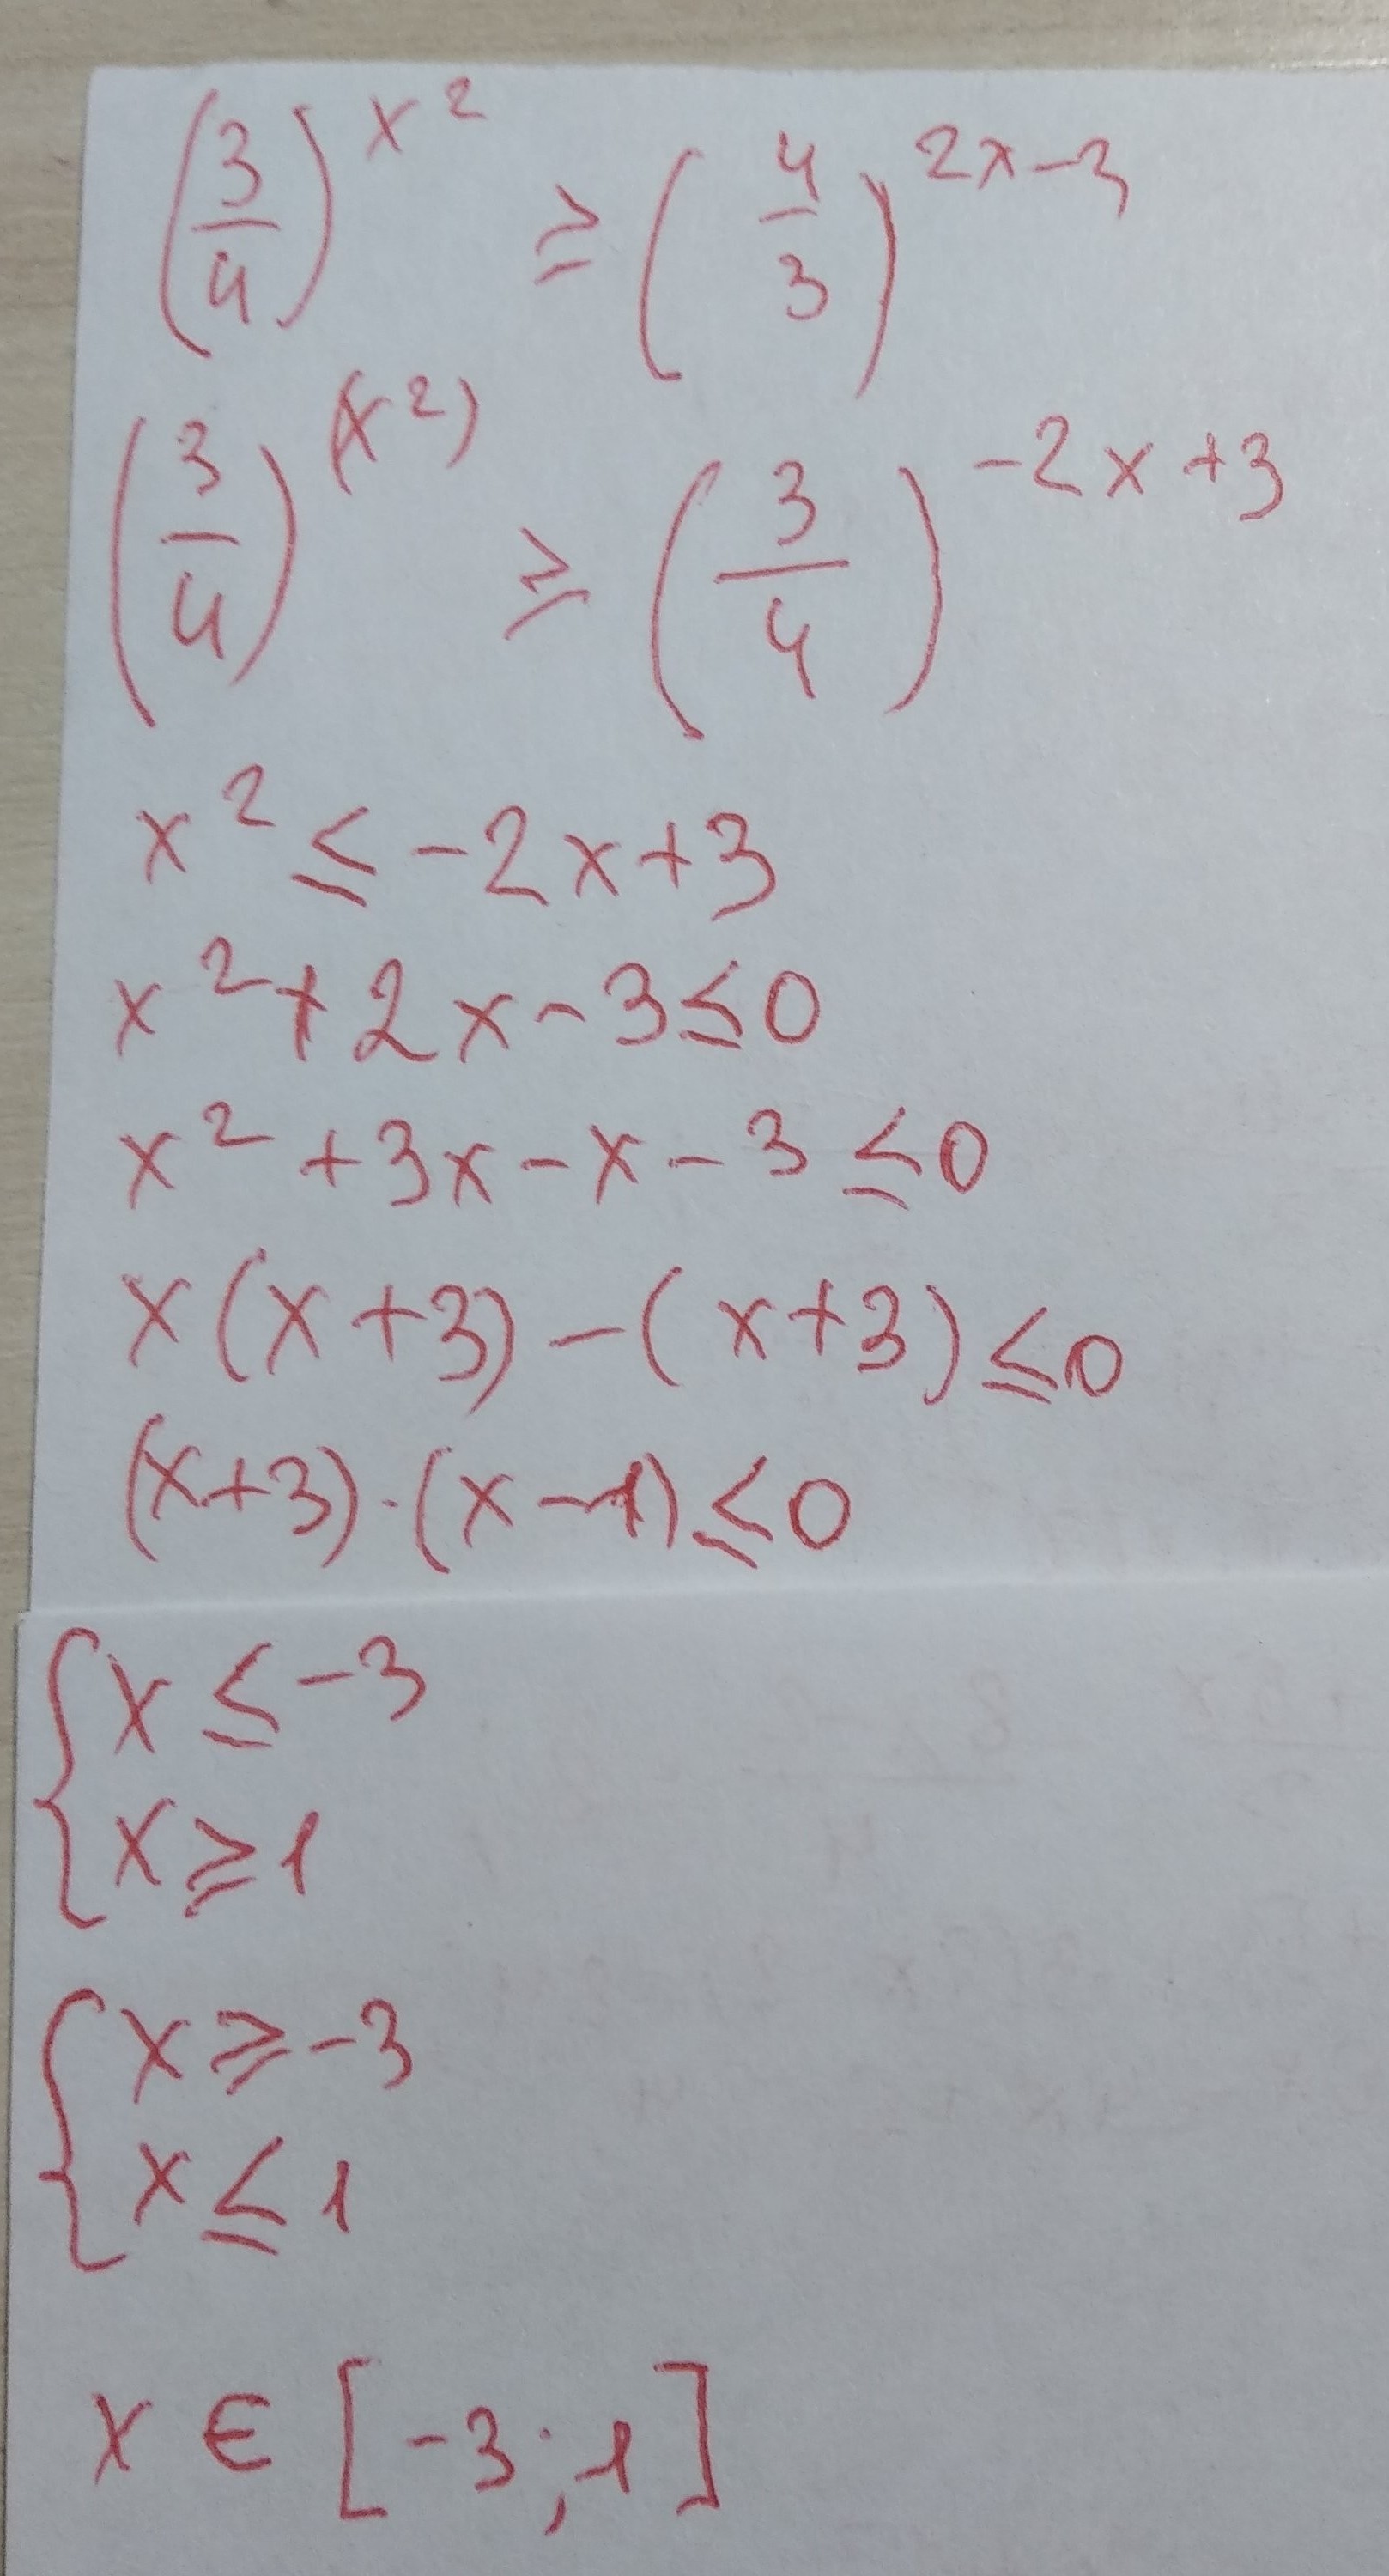 (3/4)^x² ≥ (4/3)^2x-3
(3/4)^(x²) ≥ (3/4)^-2x+3
x² ≤ -2x+3
x²+2x-3≤0
x²+3x-x-3≤0
x(x+3)-(x+3)≤0
(x+3)·(x-1)≤0
{x≤-3
x≥1
{x≥-3
x≤1
x∈[-3;1]